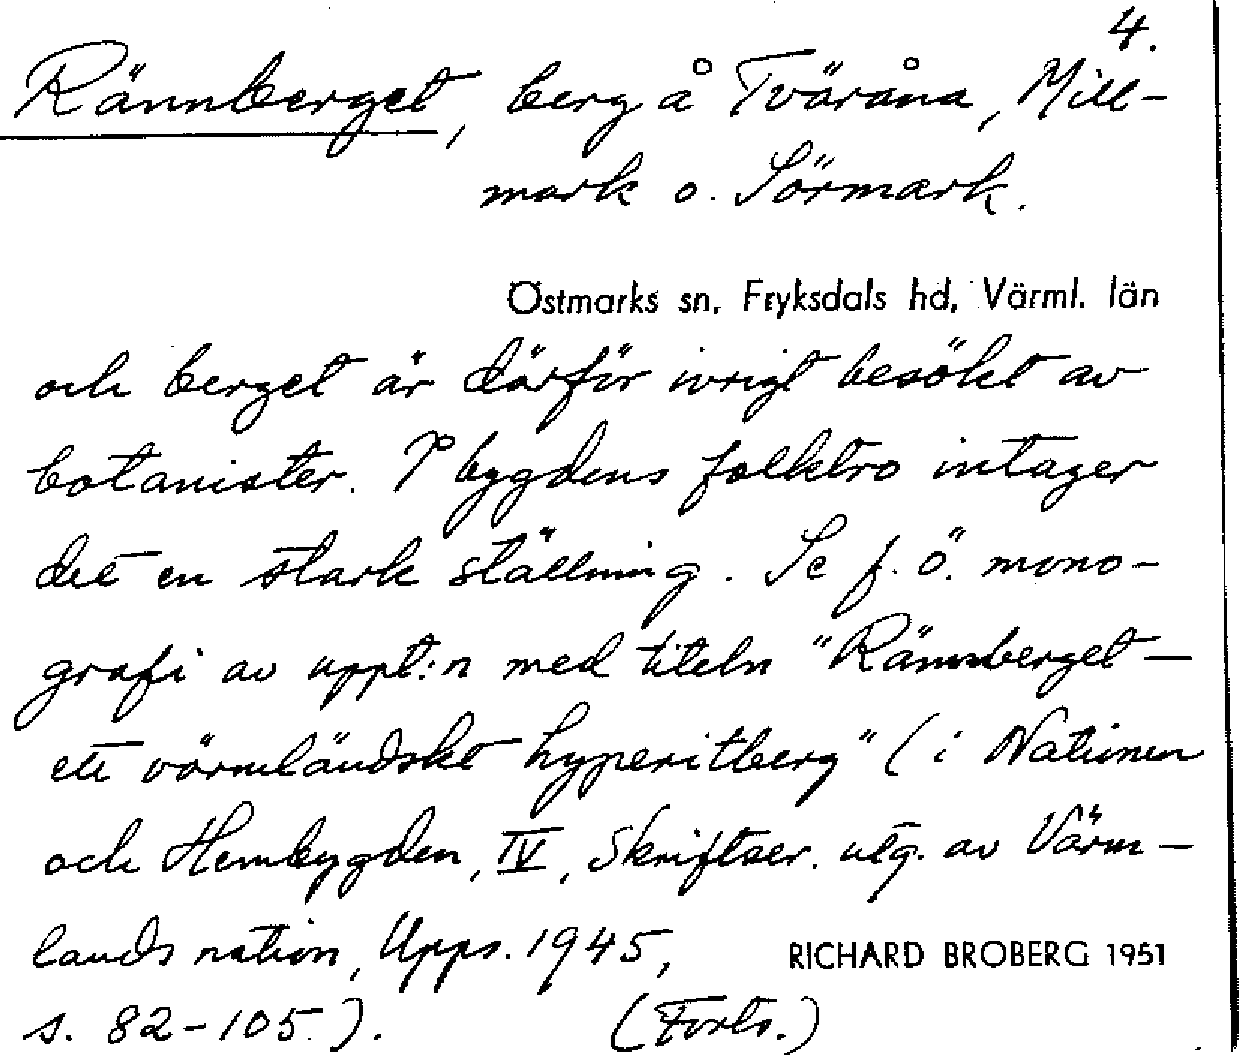 4.
Rännberget, berg å Tväråna, Mill-
mark o. Sörmark.
Östmarks sn, Fryksdals hd, Värml. län
och berget är därför ivrigt besökt av
botanister. I bygdens folktro intager
det en stark ställning. Se f. ö. mono-
grafi av uppt:n med titeln "Rännberget —
ett värmländskt hyperitberg" (i Nationen
och Hembygden, IV, Skrifter utg. av Värm-
lands nation, Upps. 1945,
RICHARD BROBERG 1951
s. 82-105.). (Forts.)